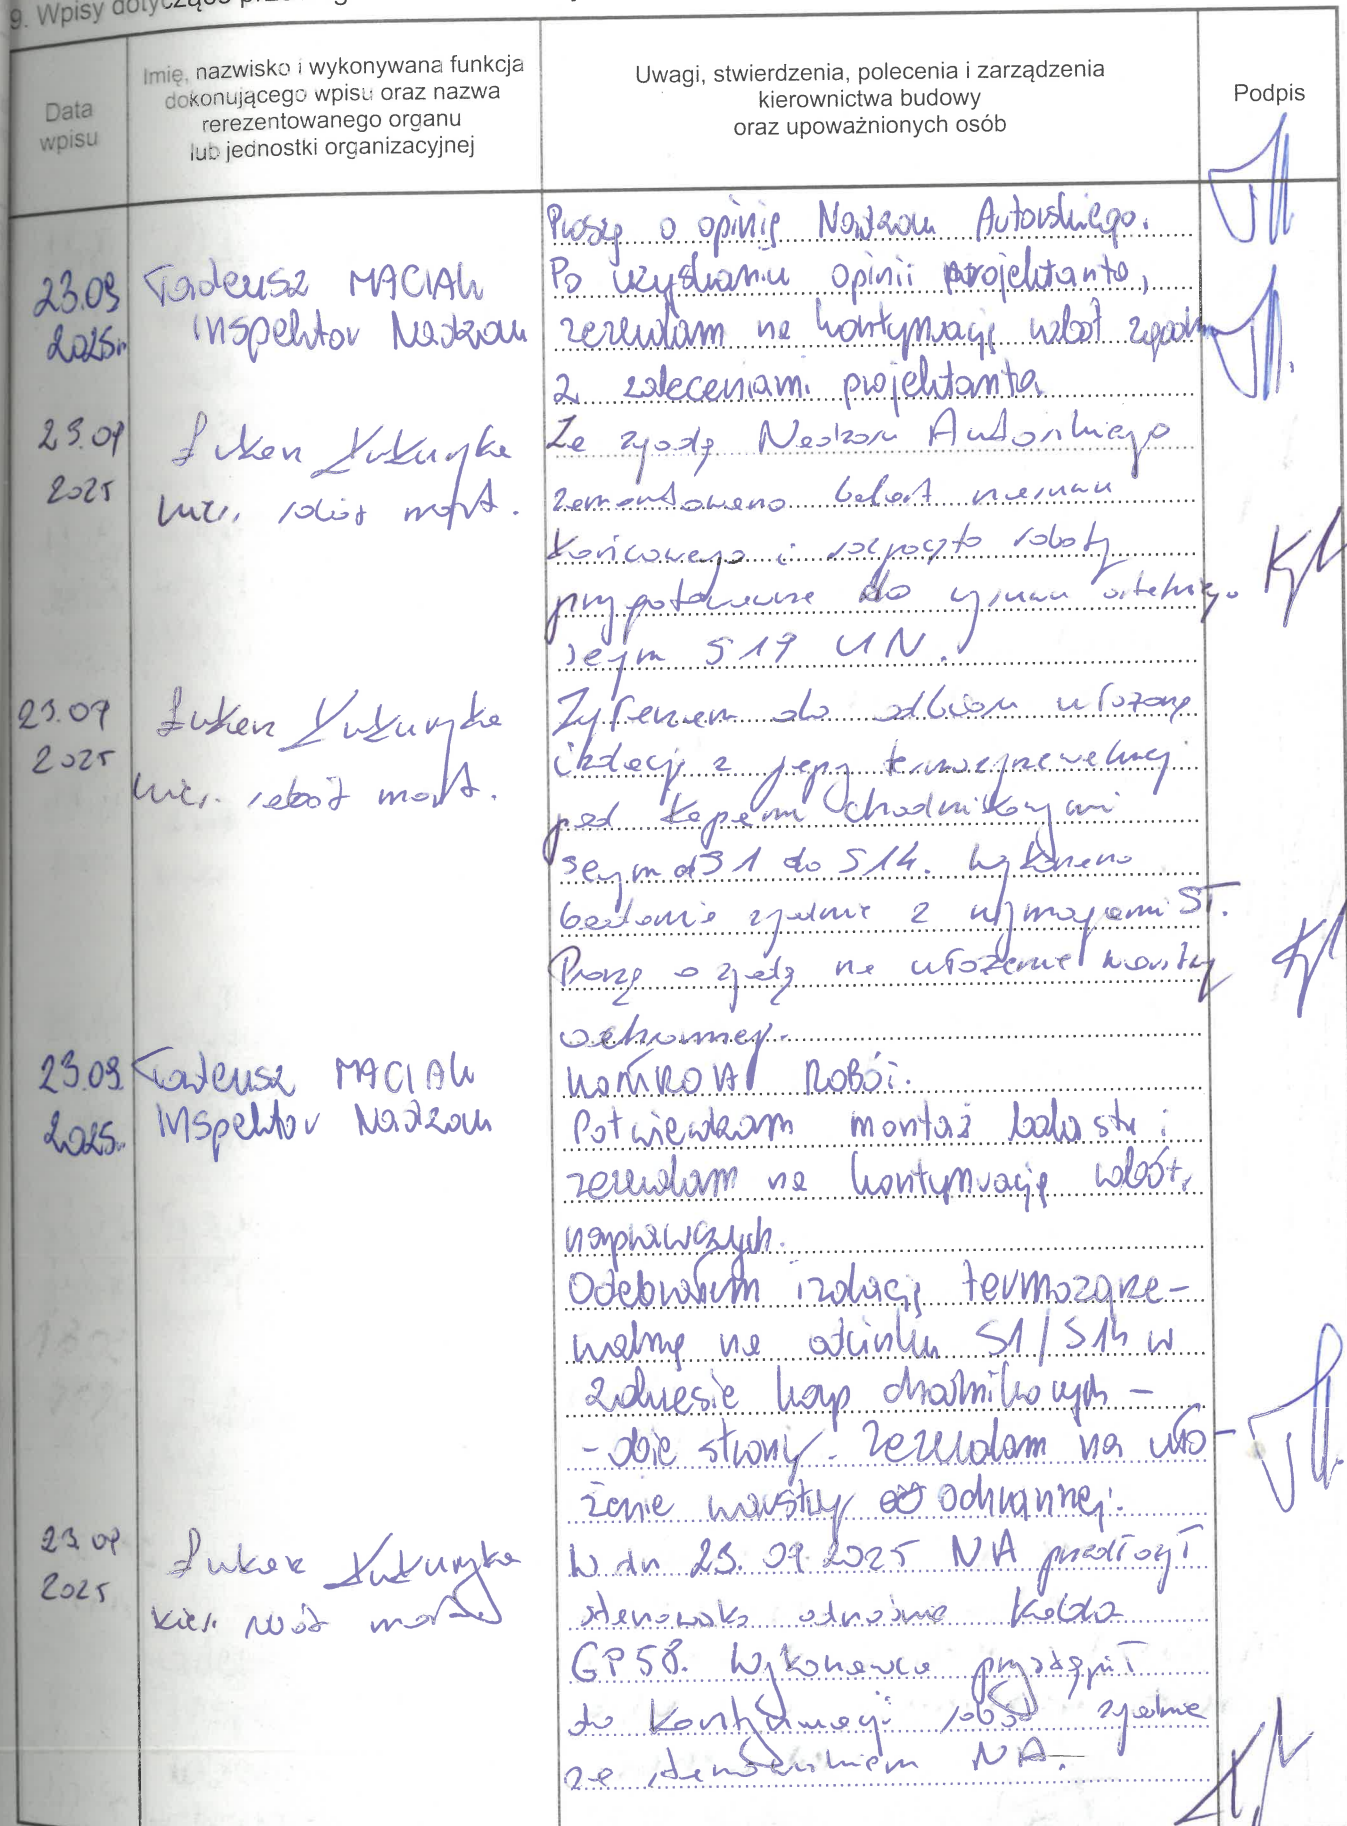 9. Wpisy dotyczące
Data
wpisu
Imię, nazwisko i wykonywana funkcja
dokonującego wpisu oraz nazwa
rerezentowanego organu
lub jednostki organizacyjnej
Uwagi, stwierdzenia, polecenia i zarządzenia
kierownictwa budowy
oraz upoważnionych osób
Podpis
Proszę o opinię Nadzoru Autorskiego.
23.09
2025r.
Tadeusz MACIAK
Inspektor Nadzoru
Po uzyskaniu opinii projektanta,
zezwalam na kontynuację robót zgodn
z zaleceniami projektanta
23.09
2025
Łukasz
kier. robót most.
Za zgodą Nadzoru Autorskiego
zamontowano balast
końcowego i rozpoczęto roboty
przygotowawcze do
segm S19 UN.
23.09
2025
Łukasz
kier. robót most.
Zgłaszam do odbioru ułożoną
izolację z papy termozgrzewalnej
pod kapami chodnikowymi
segm od S1 do S14. Wykonano
badania zgodnie z wymogami ST.
Proszę o zgodę na ułożenie warstwy
ochronnej.
23.09
2025r.
Tadeusz MACIAK
Inspektor Nadzoru
KONTROLA ROBÓT.
Potwierdzam montaż balastu i
zezwalam na kontynuację robót
naprawczych.
Odebrałem izolację termozgrze-
walną na odcinku S1/S14 w
zakresie kap chodnikowych -
- obie strony. Zezwalam na uło-
żenie warstwy ochronnej.
23.09
2025
Łukasz
kier. robót most
W dn 23.09.2025 NA przedłożył
stanowisko odnośnie kabla
GP58. Wykonawca przystąpił
do kontynuacji robót zgodnie
ze stanowiskiem NA.